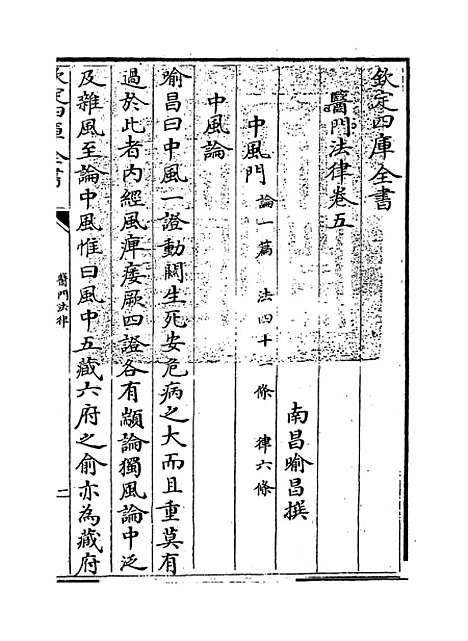 欽定四庫全書
醫門法律卷五
南昌喻昌撰
中風門論一篇 法四十一條 律六條
中風論
喻昌曰中風一證動關生死安危病之大而且重莫有
過於此者内經風痺痿厥四證各有顓論獨風論中泛
及雜風至論中風惟曰風中五藏六府之俞亦為藏府
醫門法律